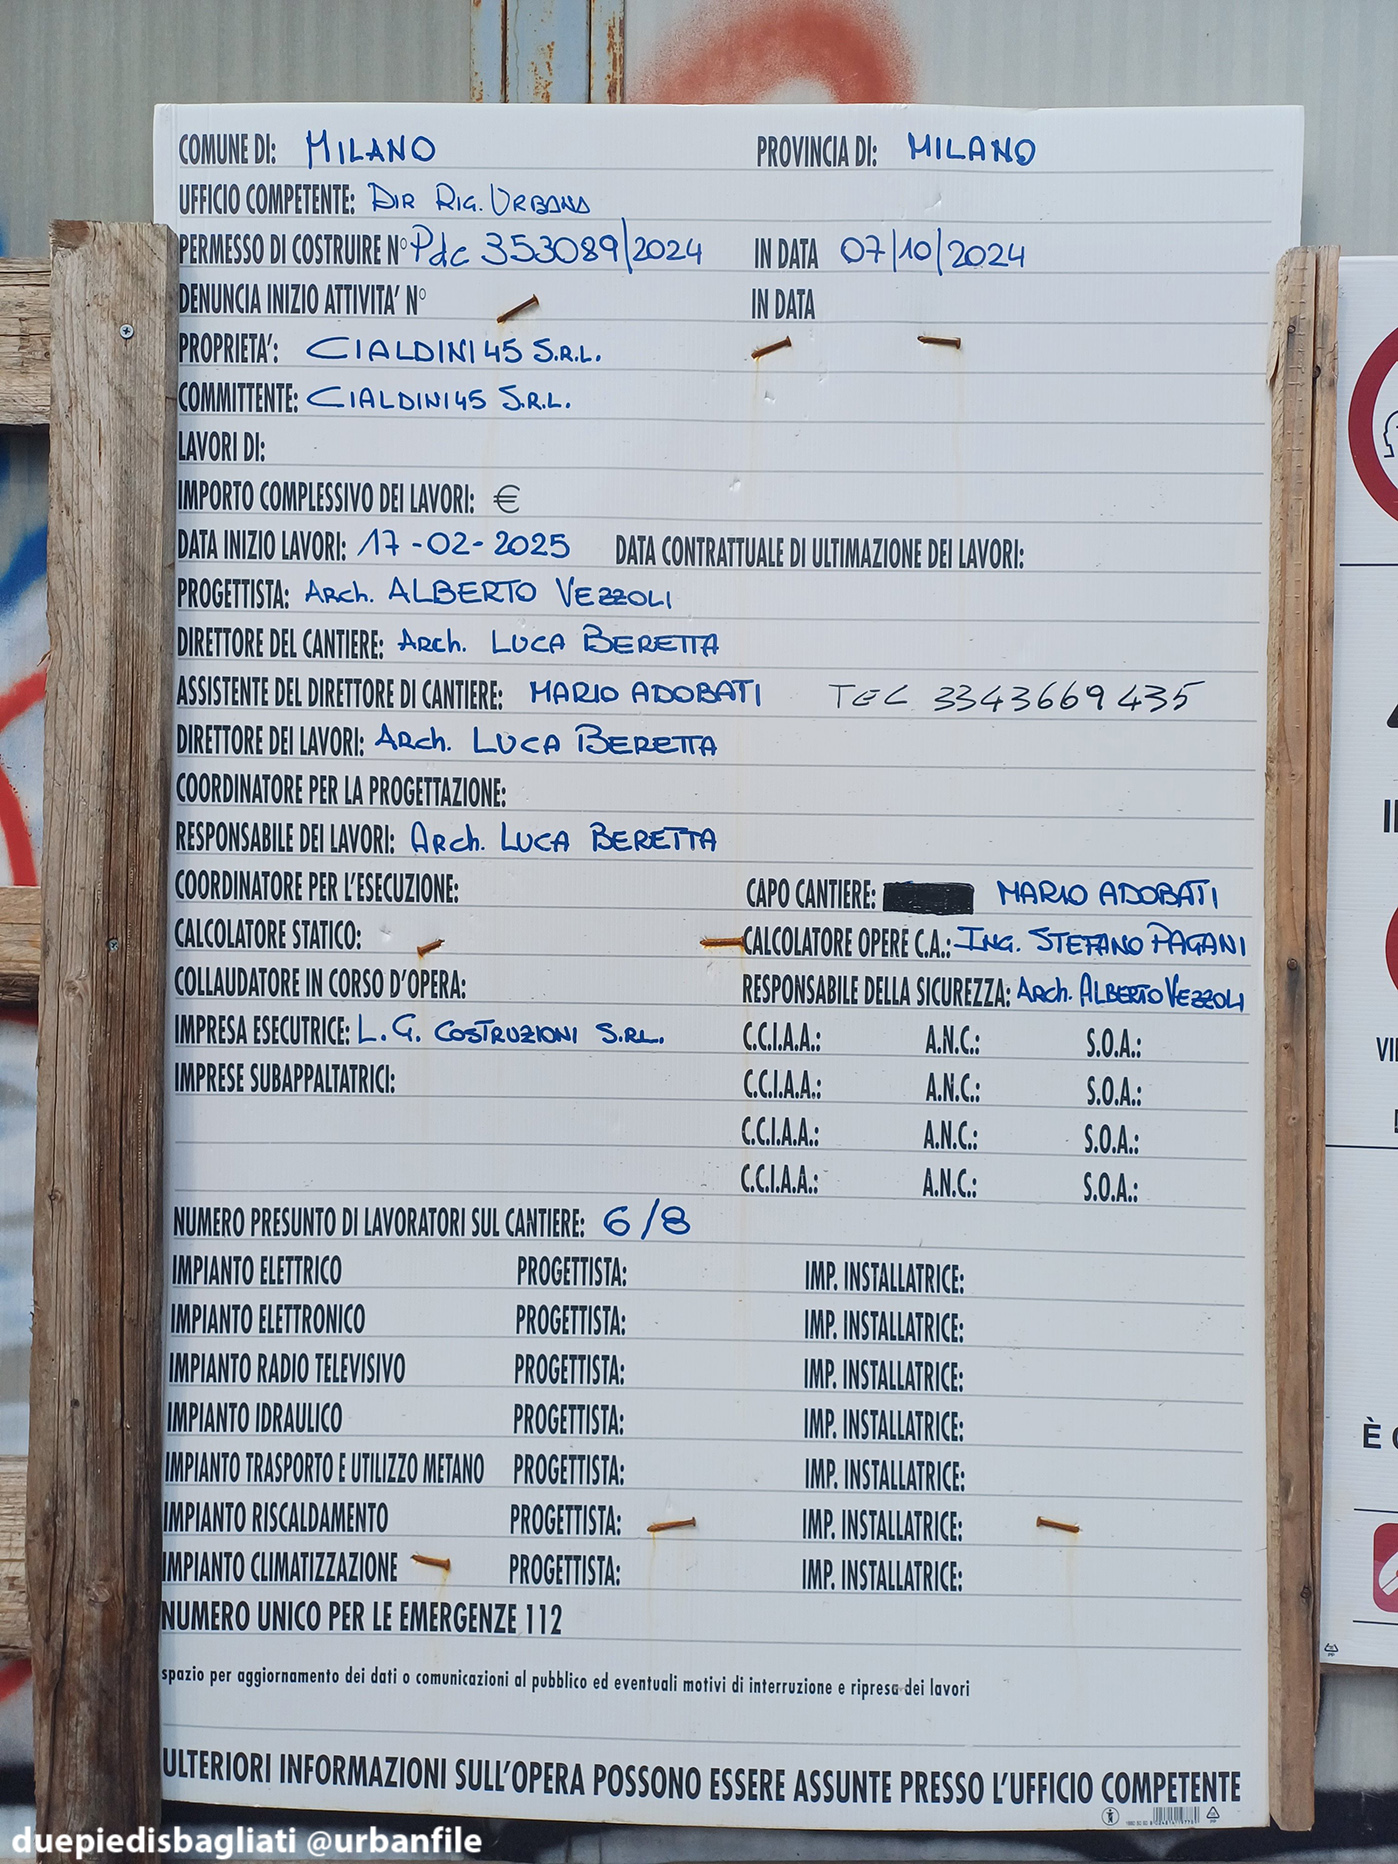 COMUNE DI: MILANO PROVINCIA DI: MILANO
UFFICIO COMPETENTE: DIR RIG. URBANA
PERMESSO DI COSTRUIRE N° Pdc 353089/2024 IN DATA 07/10/2024
DENUNCIA INIZIO ATTIVITA' N° IN DATA
PROPRIETA': CIALDINI 45 S.R.L.
COMMITTENTE: CIALDINI 45 S.R.L.
LAVORI DI:
IMPORTO COMPLESSIVO DEI LAVORI: €
DATA INIZIO LAVORI: 17-02-2025 DATA CONTRATTUALE DI ULTIMAZIONE DEI LAVORI:
PROGETTISTA: Arch. ALBERTO VEZZOLI
DIRETTORE DEL CANTIERE: Arch. LUCA BERETTA
ASSISTENTE DEL DIRETTORE DI CANTIERE: MARIO ADOBATI TEL 3343669435
DIRETTORE DEI LAVORI: Arch. LUCA BERETTA
COORDINATORE PER LA PROGETTAZIONE:
RESPONSABILE DEI LAVORI: Arch. LUCA BERETTA
COORDINATORE PER L'ESECUZIONE: CAPO CANTIERE: MARIO ADOBATI
CALCOLATORE STATICO: CALCOLATORE OPERE C.A.: ING. STEFANO PAGANI
COLLAUDATORE IN CORSO D'OPERA: RESPONSABILE DELLA SICUREZZA: Arch. ALBERTO VEZZOLI
IMPRESA ESECUTRICE: L.G. COSTRUZIONI S.RL. C.C.I.A.A.: A.N.C.: S.O.A.:
IMPRESE SUBAPPALTATRICI: C.C.I.A.A.: A.N.C.: S.O.A.:
C.C.I.A.A.: A.N.C.: S.O.A.:
C.C.I.A.A.: A.N.C.: S.O.A.:
NUMERO PRESUNTO DI LAVORATORI SUL CANTIERE: 6/8
IMPIANTO ELETTRICO PROGETTISTA: IMP. INSTALLATRICE:
IMPIANTO ELETTRONICO PROGETTISTA: IMP. INSTALLATRICE:
IMPIANTO RADIO TELEVISIVO PROGETTISTA: IMP. INSTALLATRICE:
IMPIANTO IDRAULICO PROGETTISTA: IMP. INSTALLATRICE:
IMPIANTO TRASPORTO E UTILIZZO METANO PROGETTISTA: IMP. INSTALLATRICE:
IMPIANTO RISCALDAMENTO PROGETTISTA: IMP. INSTALLATRICE:
IMPIANTO CLIMATIZZAZIONE PROGETTISTA: IMP. INSTALLATRICE:
NUMERO UNICO PER LE EMERGENZE 112
spazio per aggiornamento dei dati o comunicazioni al pubblico ed eventuali motivi di interruzione e ripresa dei lavori
ULTERIORI INFORMAZIONI SULL'OPERA POSSONO ESSERE ASSUNTE PRESSO L'UFFICIO COMPETENTE
duepiedisbagliati @urbanfile